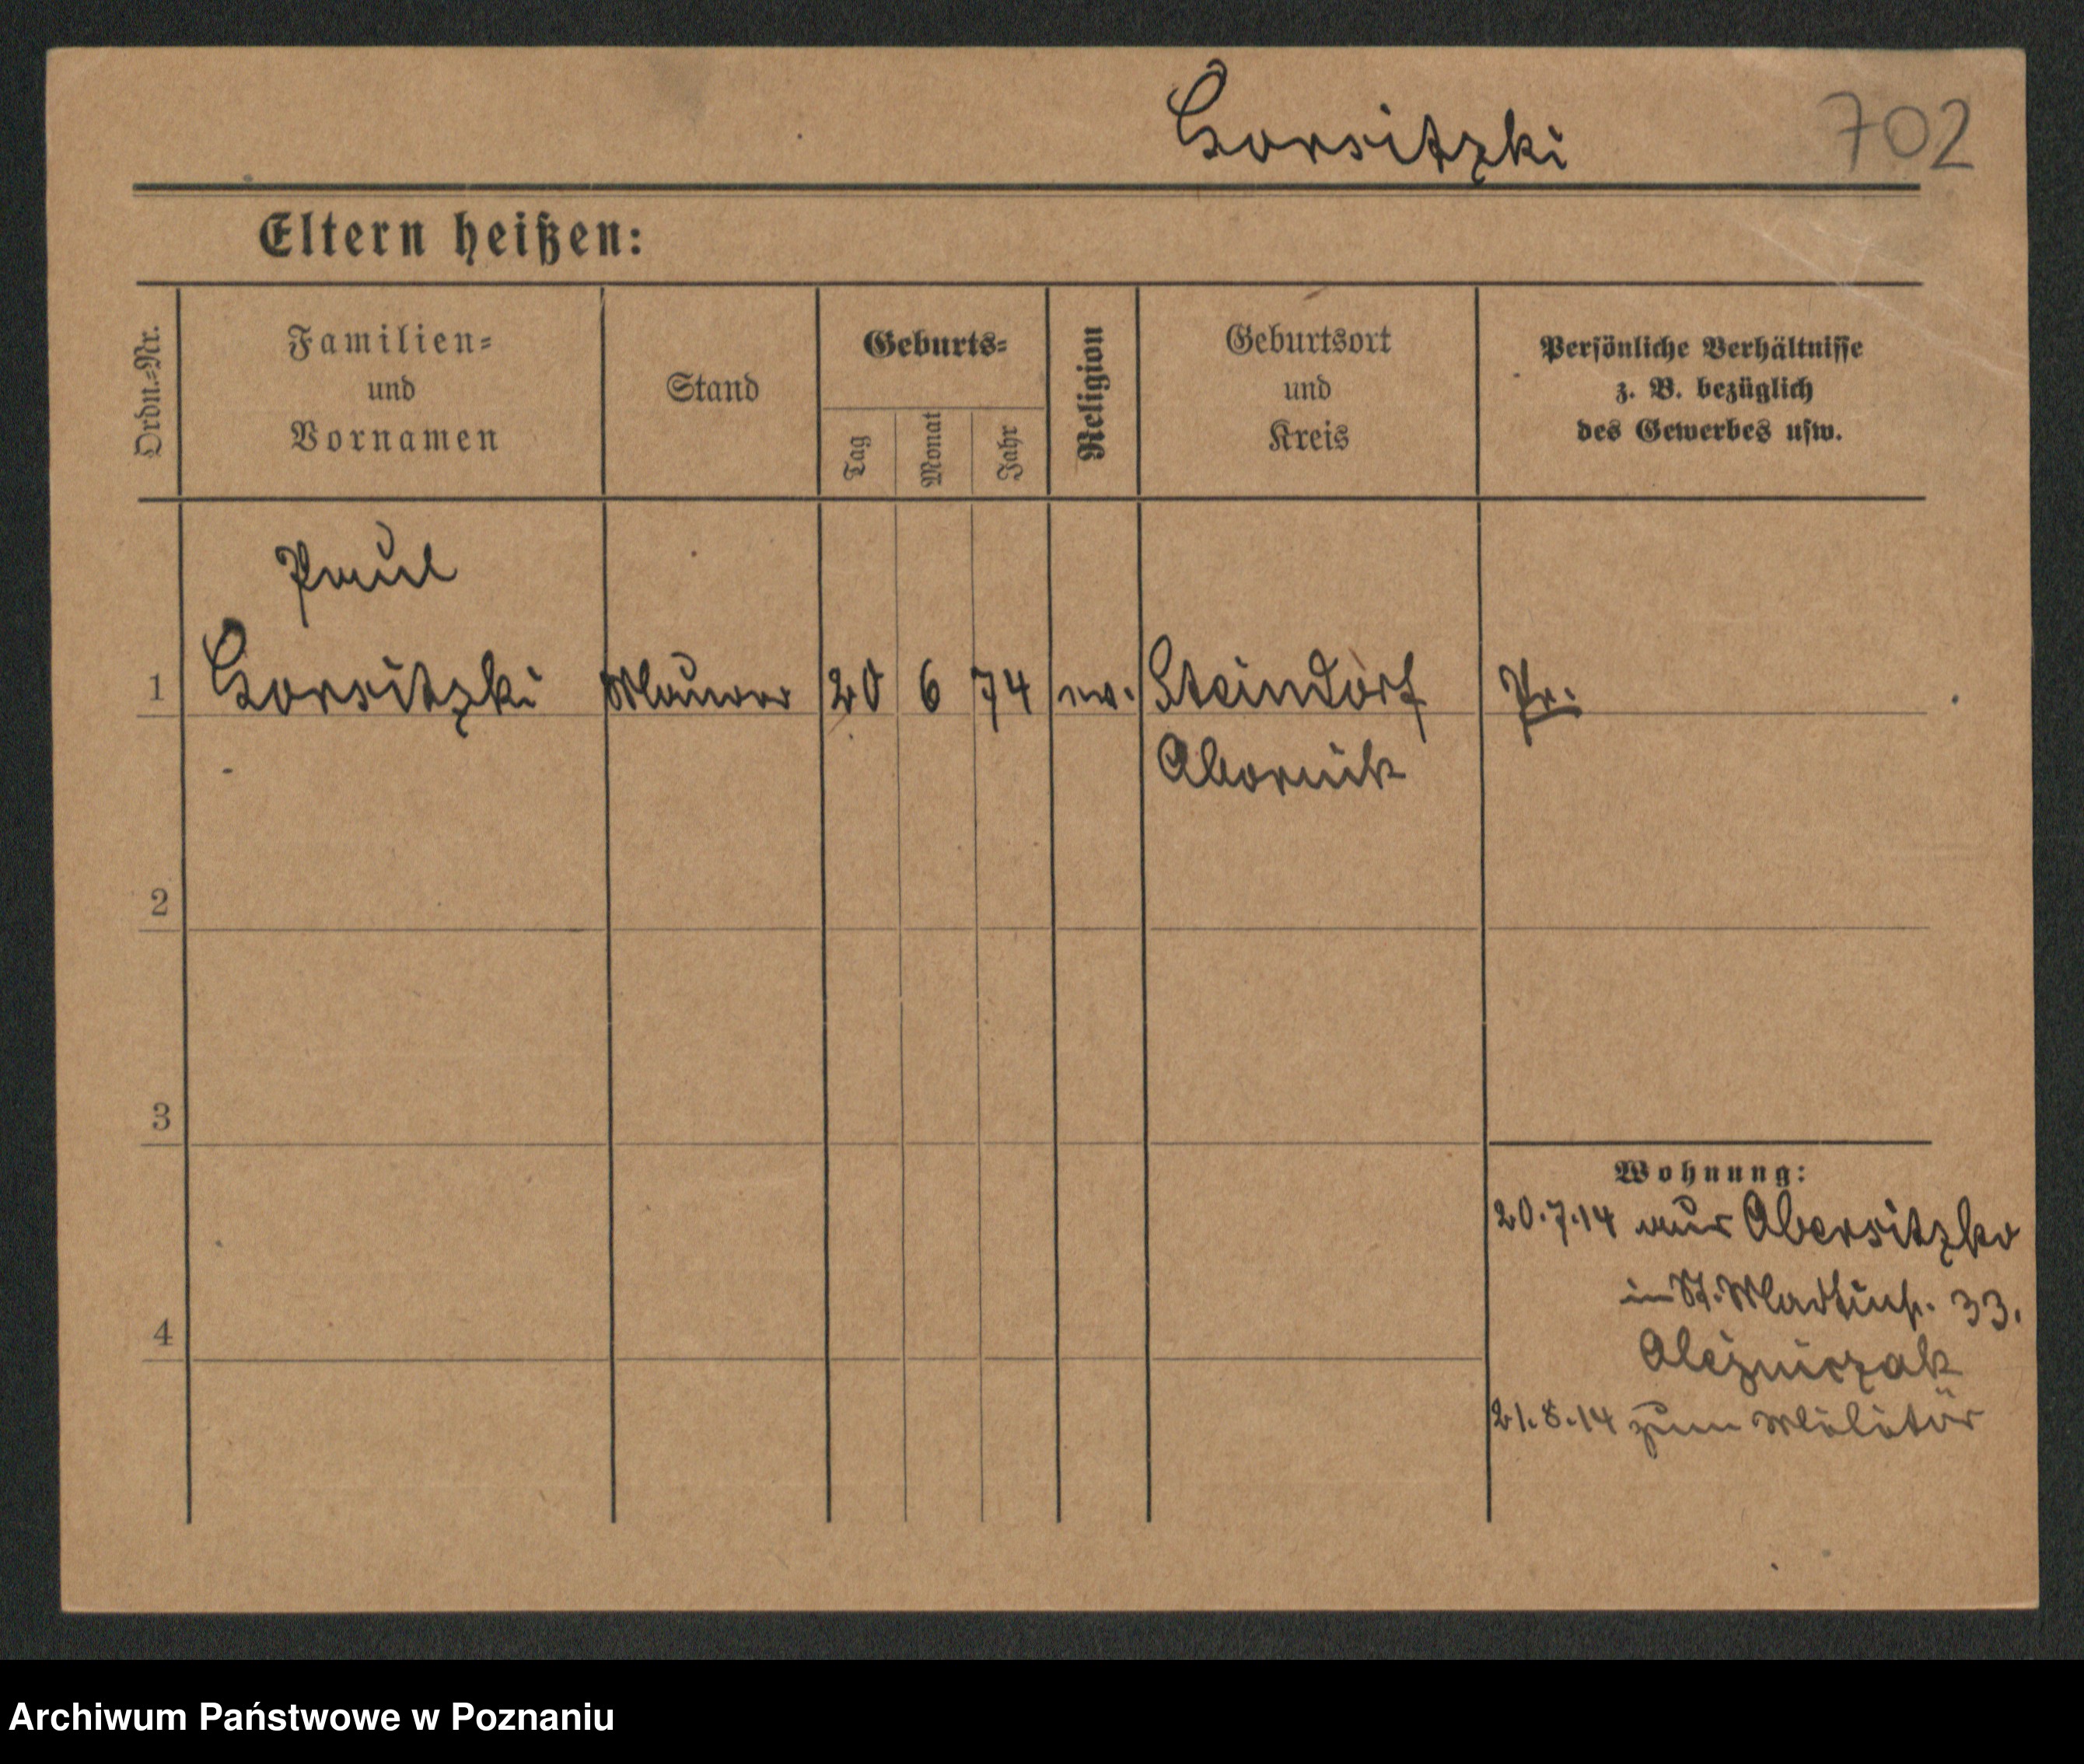 Gorsitzki 702
Eltern heißen:
Ordn.-Nr.
Familien-
und
Vornamen
Stand
Geburts-
Tag
Monat
Jahr
Religion
Geburtsort
und
Kreis
Persönliche Verhältnisse
z. B. bezüglich
des Gewerbes usw.
Paul
1 Gorsitzki Maurer 20 6 74 ev. Steindorf Pr.
Obornik
2
3
4
Wohnung:
20.7.14 aus Obersitzko
in St. Martinstr. 33.
Olejniczak
21.8.14 zum Militär
Archiwum Państwowe w Poznaniu